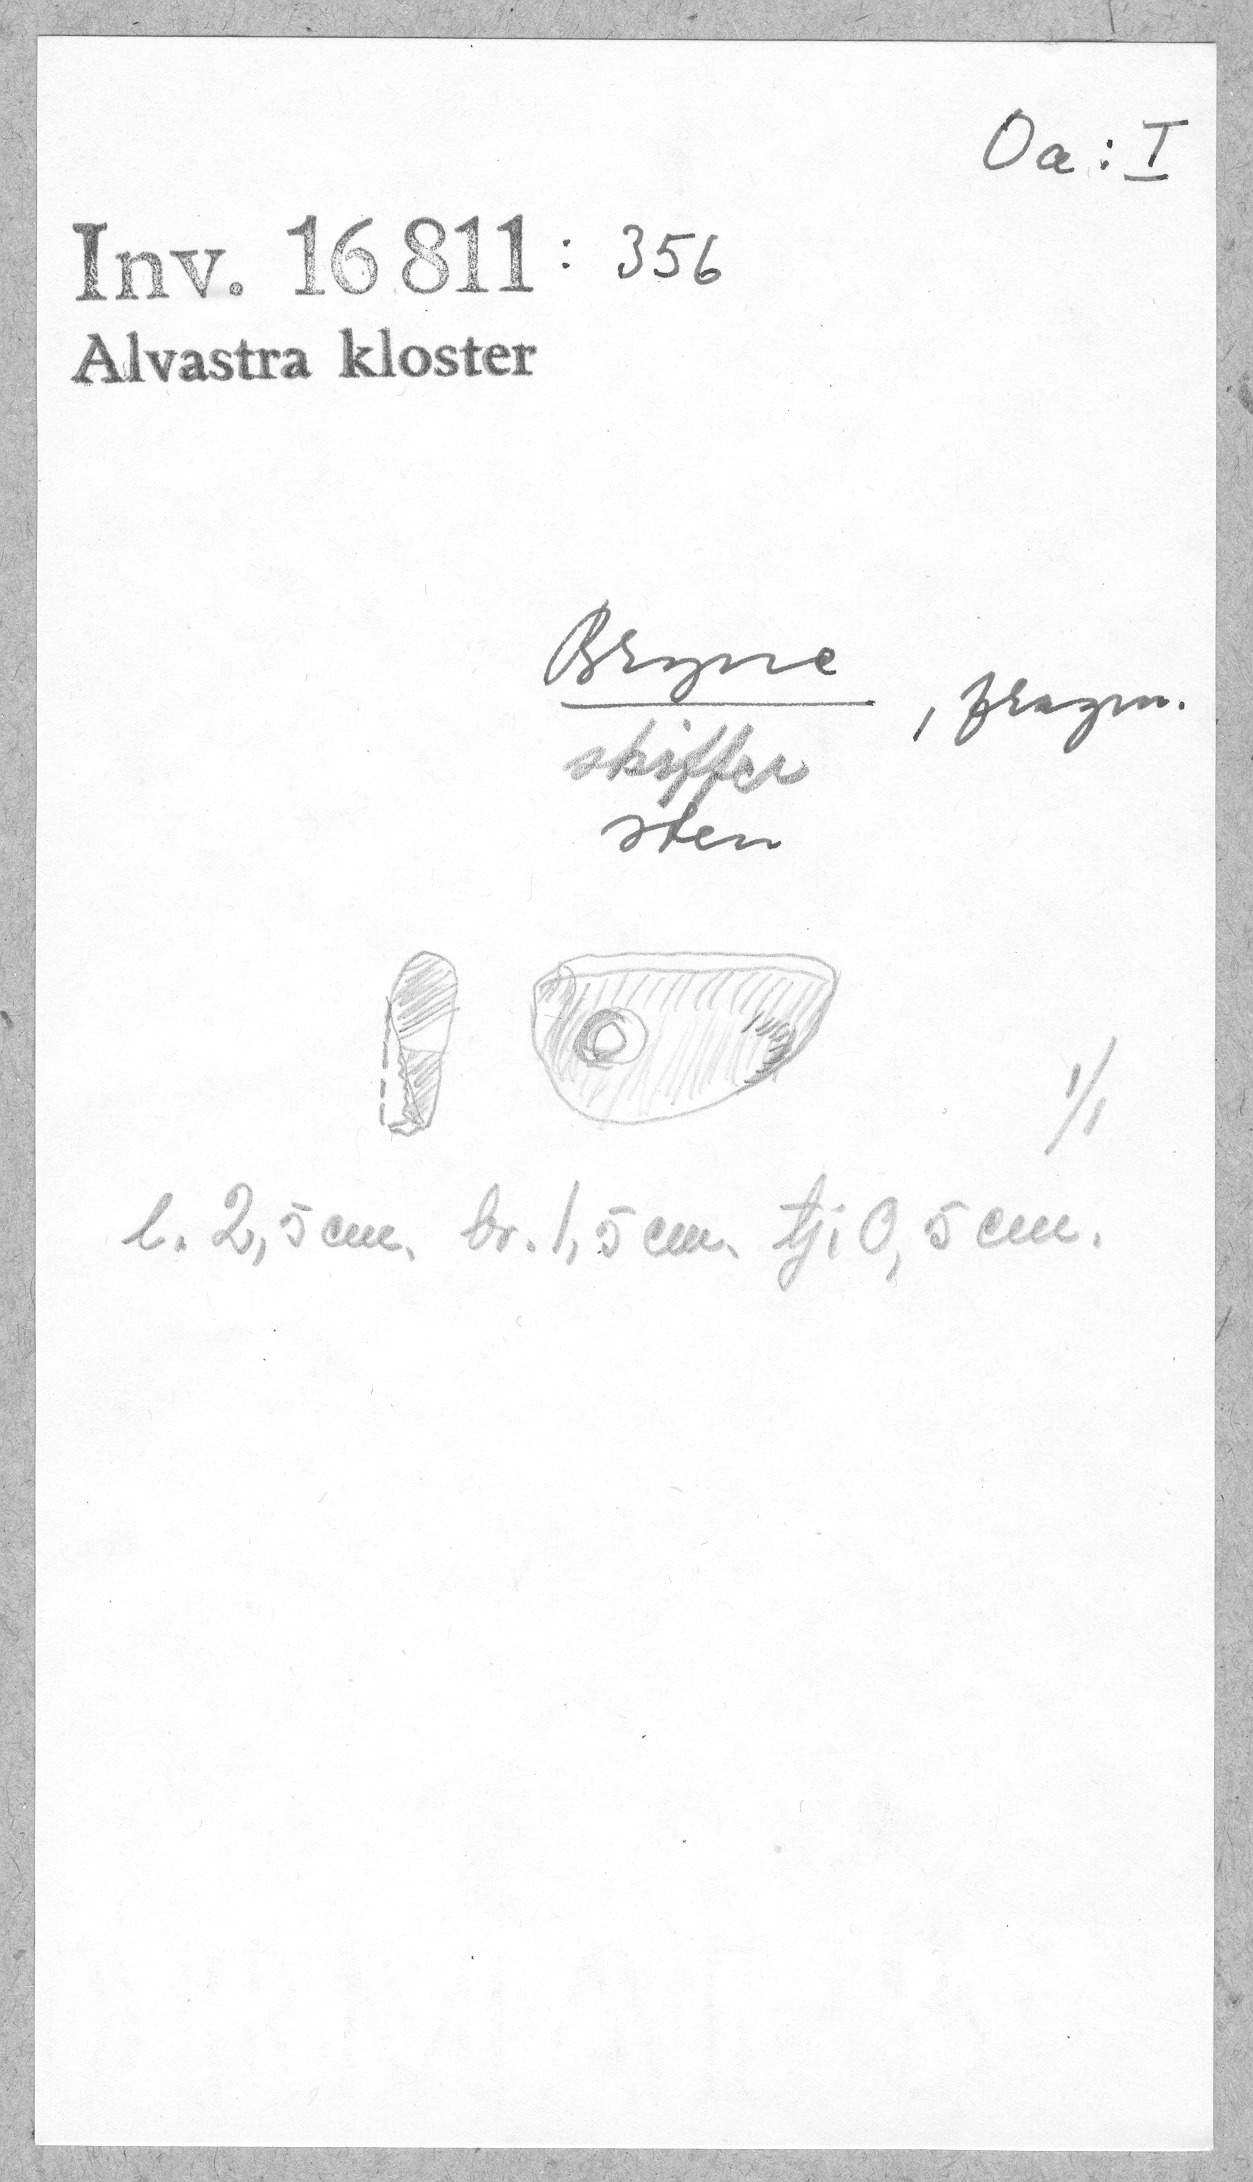 Oa: I
Inv. 16811: 356
Alvastra kloster
Bryne, fragm.
skiffer
sten
1/1
l. 2,5 cm. br. 1,5 cm. tj. 0,5 cm.